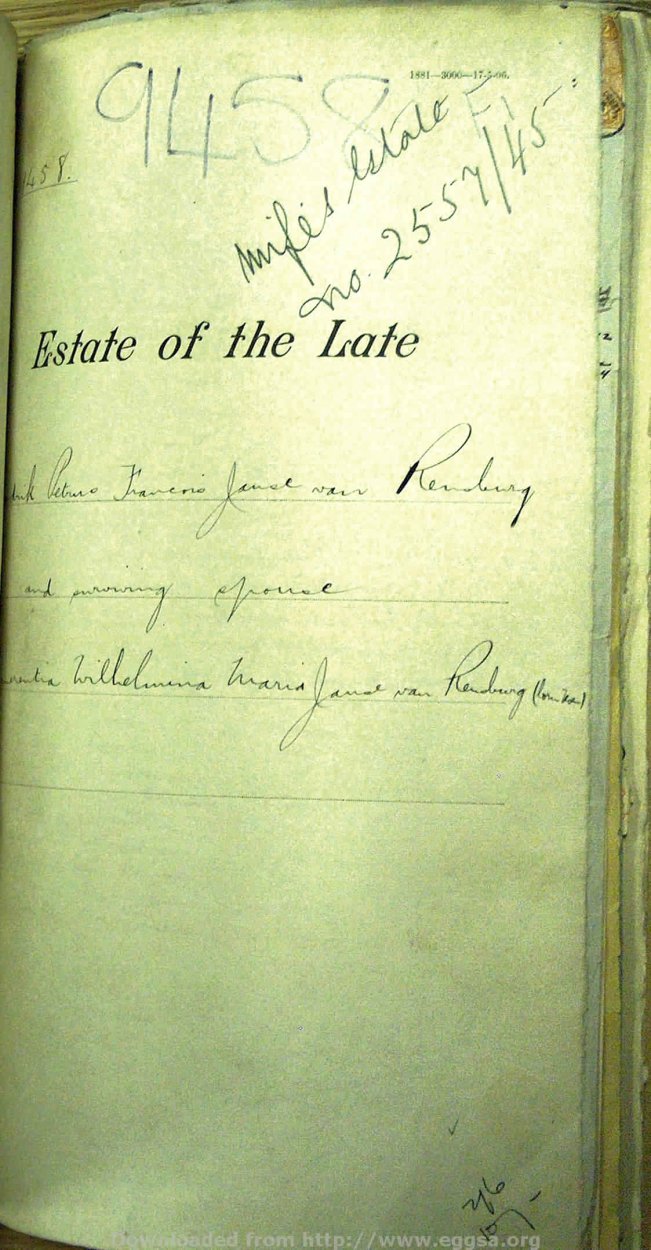 1881—3000—17-5-06.
9458
458.
Wife's Estate
no. 2557/45
Estate of the Late
Petrus Francois Janse van Rensburg
and surviving spouse
Wilhelmina Maria Janse van Rensburg (born
2/6
Downloaded from http://www.eggsa.org